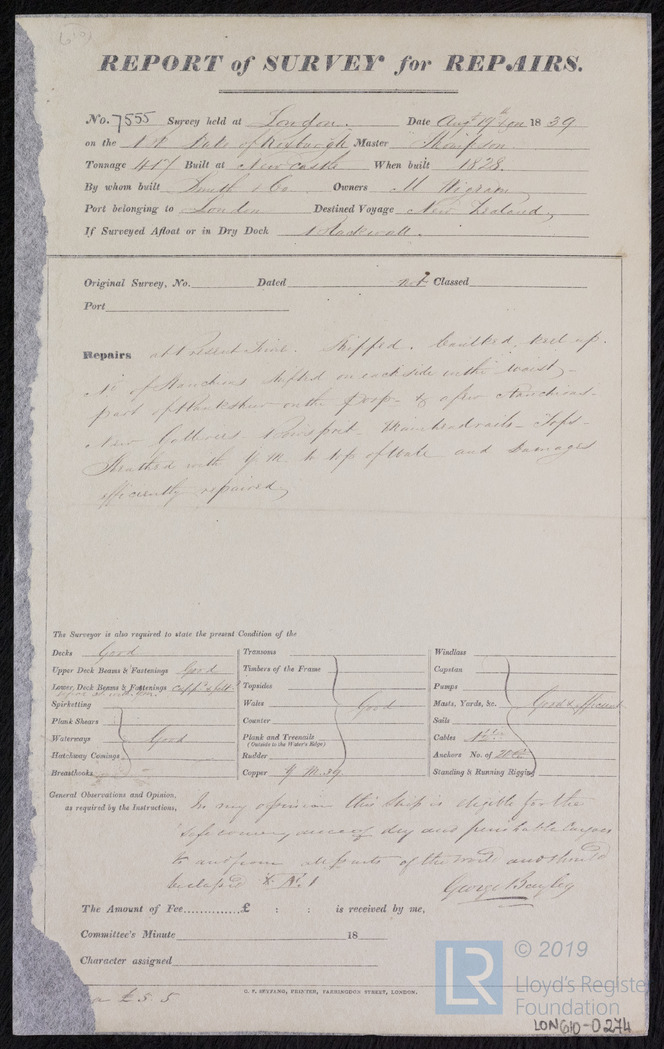 REPORT of SURVEY for REPAIRS.
No. 7555 Survey held at London. Date Augt 19th 1839
on the Duke of Roxburgh Master Thompson
Tonnage 417 Built at Newcastle When built 1828.
By whom built Smith & Co Owners M Wigram
Port belonging to London Destined Voyage New Zealand
If Surveyed Afloat or in Dry Dock Blackwall.
Original Survey, No. Dated not Classed
Port
Repairs at Present Time. Stripped. Caulked keel up.
No of Stanchions shifted on each side in the waist,
part of Planksheer on the Poop & a few Stanchions.
New Bowsprit Main head rails Tops
Sheathed with Y M to top of Wale and Damages
efficiently repaired
The Surveyor is also required to state the present Condition of the
Decks Good
Upper Deck Beams & Fastenings Good
Lower Deck Beams & Fastenings
Spirketting
Plank Shears
Waterways Good
Hatchway Comings
Breasthooks
Transoms
Timbers of the Frame
Topsides
Wales Good
Counter
Plank and Treenails
(Outside to the Water's Edge)
Rudder
Copper Y M 39
Windlass
Capstan
Pumps
Masts, Yards, &c. Good & efficient
Sails
Cables
Anchors No. of
Standing & Running Rigging
General Observations and Opinion, In my opinion this Ship is eligible for the
as required by the Instructions, safe conveyance of dry and perishable Cargoes
to and from all parts of the world and should
be classed Æ No. 1
George Bayley
The Amount of Fee..............£ : : is received by me,
Committee's Minute 18
Character assigned
G. F. SEYFANG, PRINTER, FARRINGDON STREET, LONDON.
£5. 5
LR
© 2019
Lloyd's Register
Foundation
LON610-0274